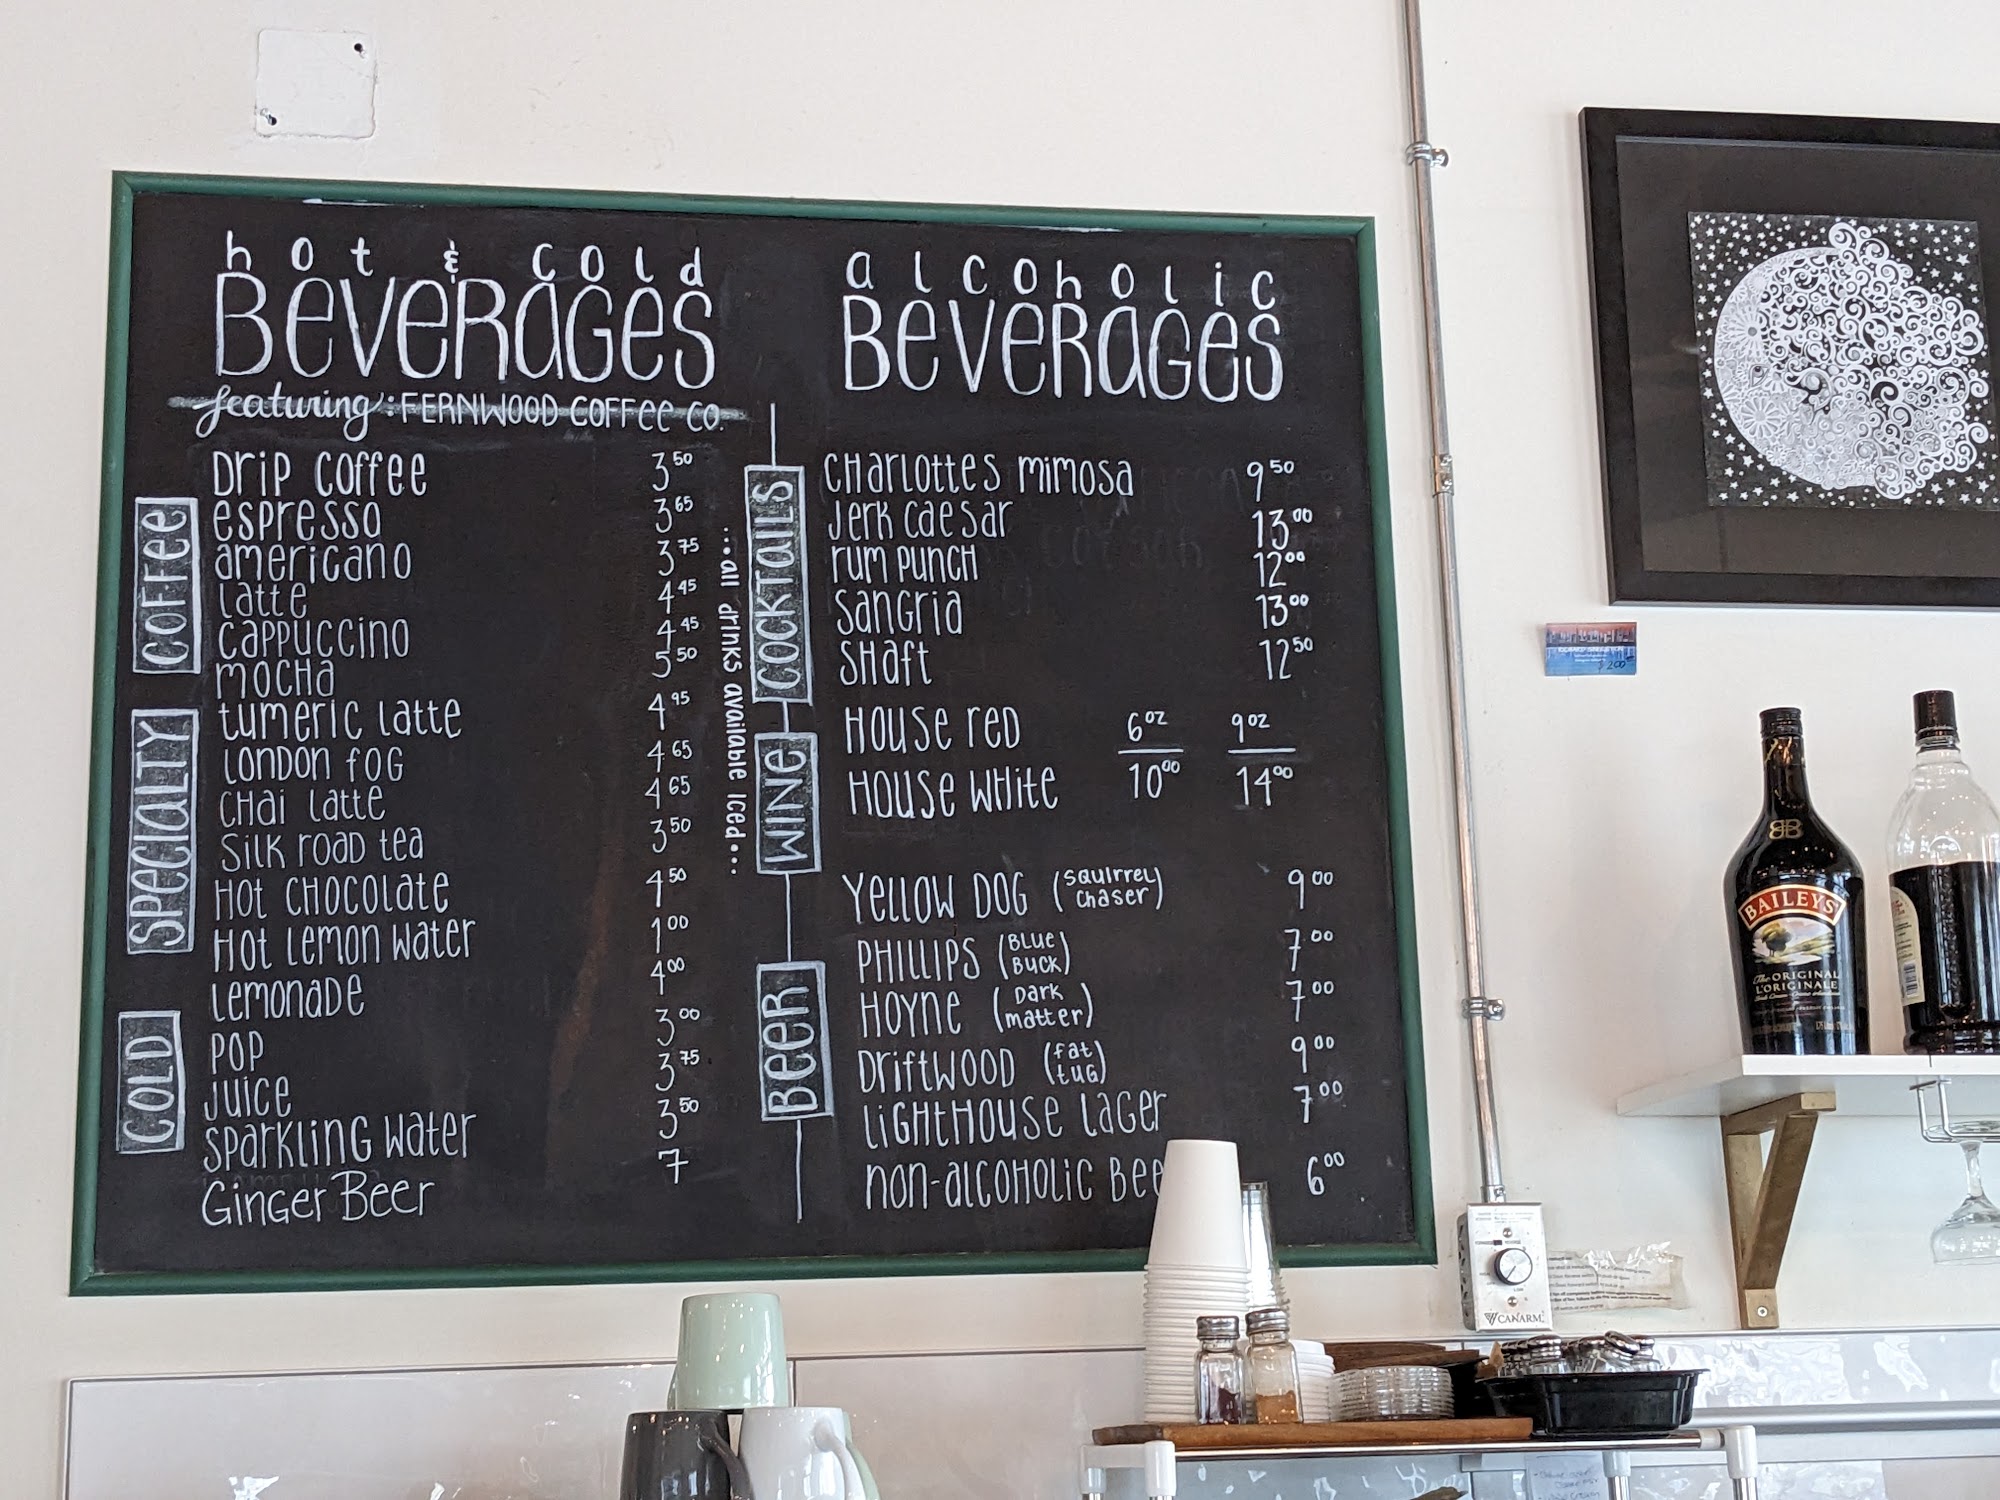 hot & cold
BEVERAGES
featuring: FERNWOOD COFFEE CO.
COFFEE
DRIP COFFEE 3.50
ESPRESSO 3.65
AMERICANO 3.75
LATTE 4.45
CAPPUCCINO 4.45
MOCHA 5.50
SPECIALTY
TUMERIC LATTE 4.95
LONDON FOG 4.65
CHAI LATTE 4.65
SILK ROAD TEA 3.50
HOT CHOCOLATE 4.50
HOT LEMON WATER 1.00
LEMONADE 4.00
COLD
POP 3.00
JUICE 3.75
SPARKLING WATER 3.50
GINGER BEER 7
...all drinks available iced...
alcoholic
BEVERAGES
COCKTAILS
CHARLOTTES MIMOSA 9.50
JERK CAESAR 13.00
RUM PUNCH 12.00
SANGRIA 13.00
SHAFT 12.50
WINE
HOUSE RED 6oz 9oz
HOUSE WHITE 10.00 14.00
BEER
YELLOW DOG (SQUIRREL CHASER) 9.00
PHILLIPS (BLUE BUCK) 7.00
HOYNE (DARK MATTER) 7.00
DRIFTWOOD (FAT TUG) 9.00
LIGHTHOUSE LAGER 7.00
NON-ALCOHOLIC BEE 6.00
$200
BAILEYS
The ORIGINAL
L'ORIGINALE
CANARM